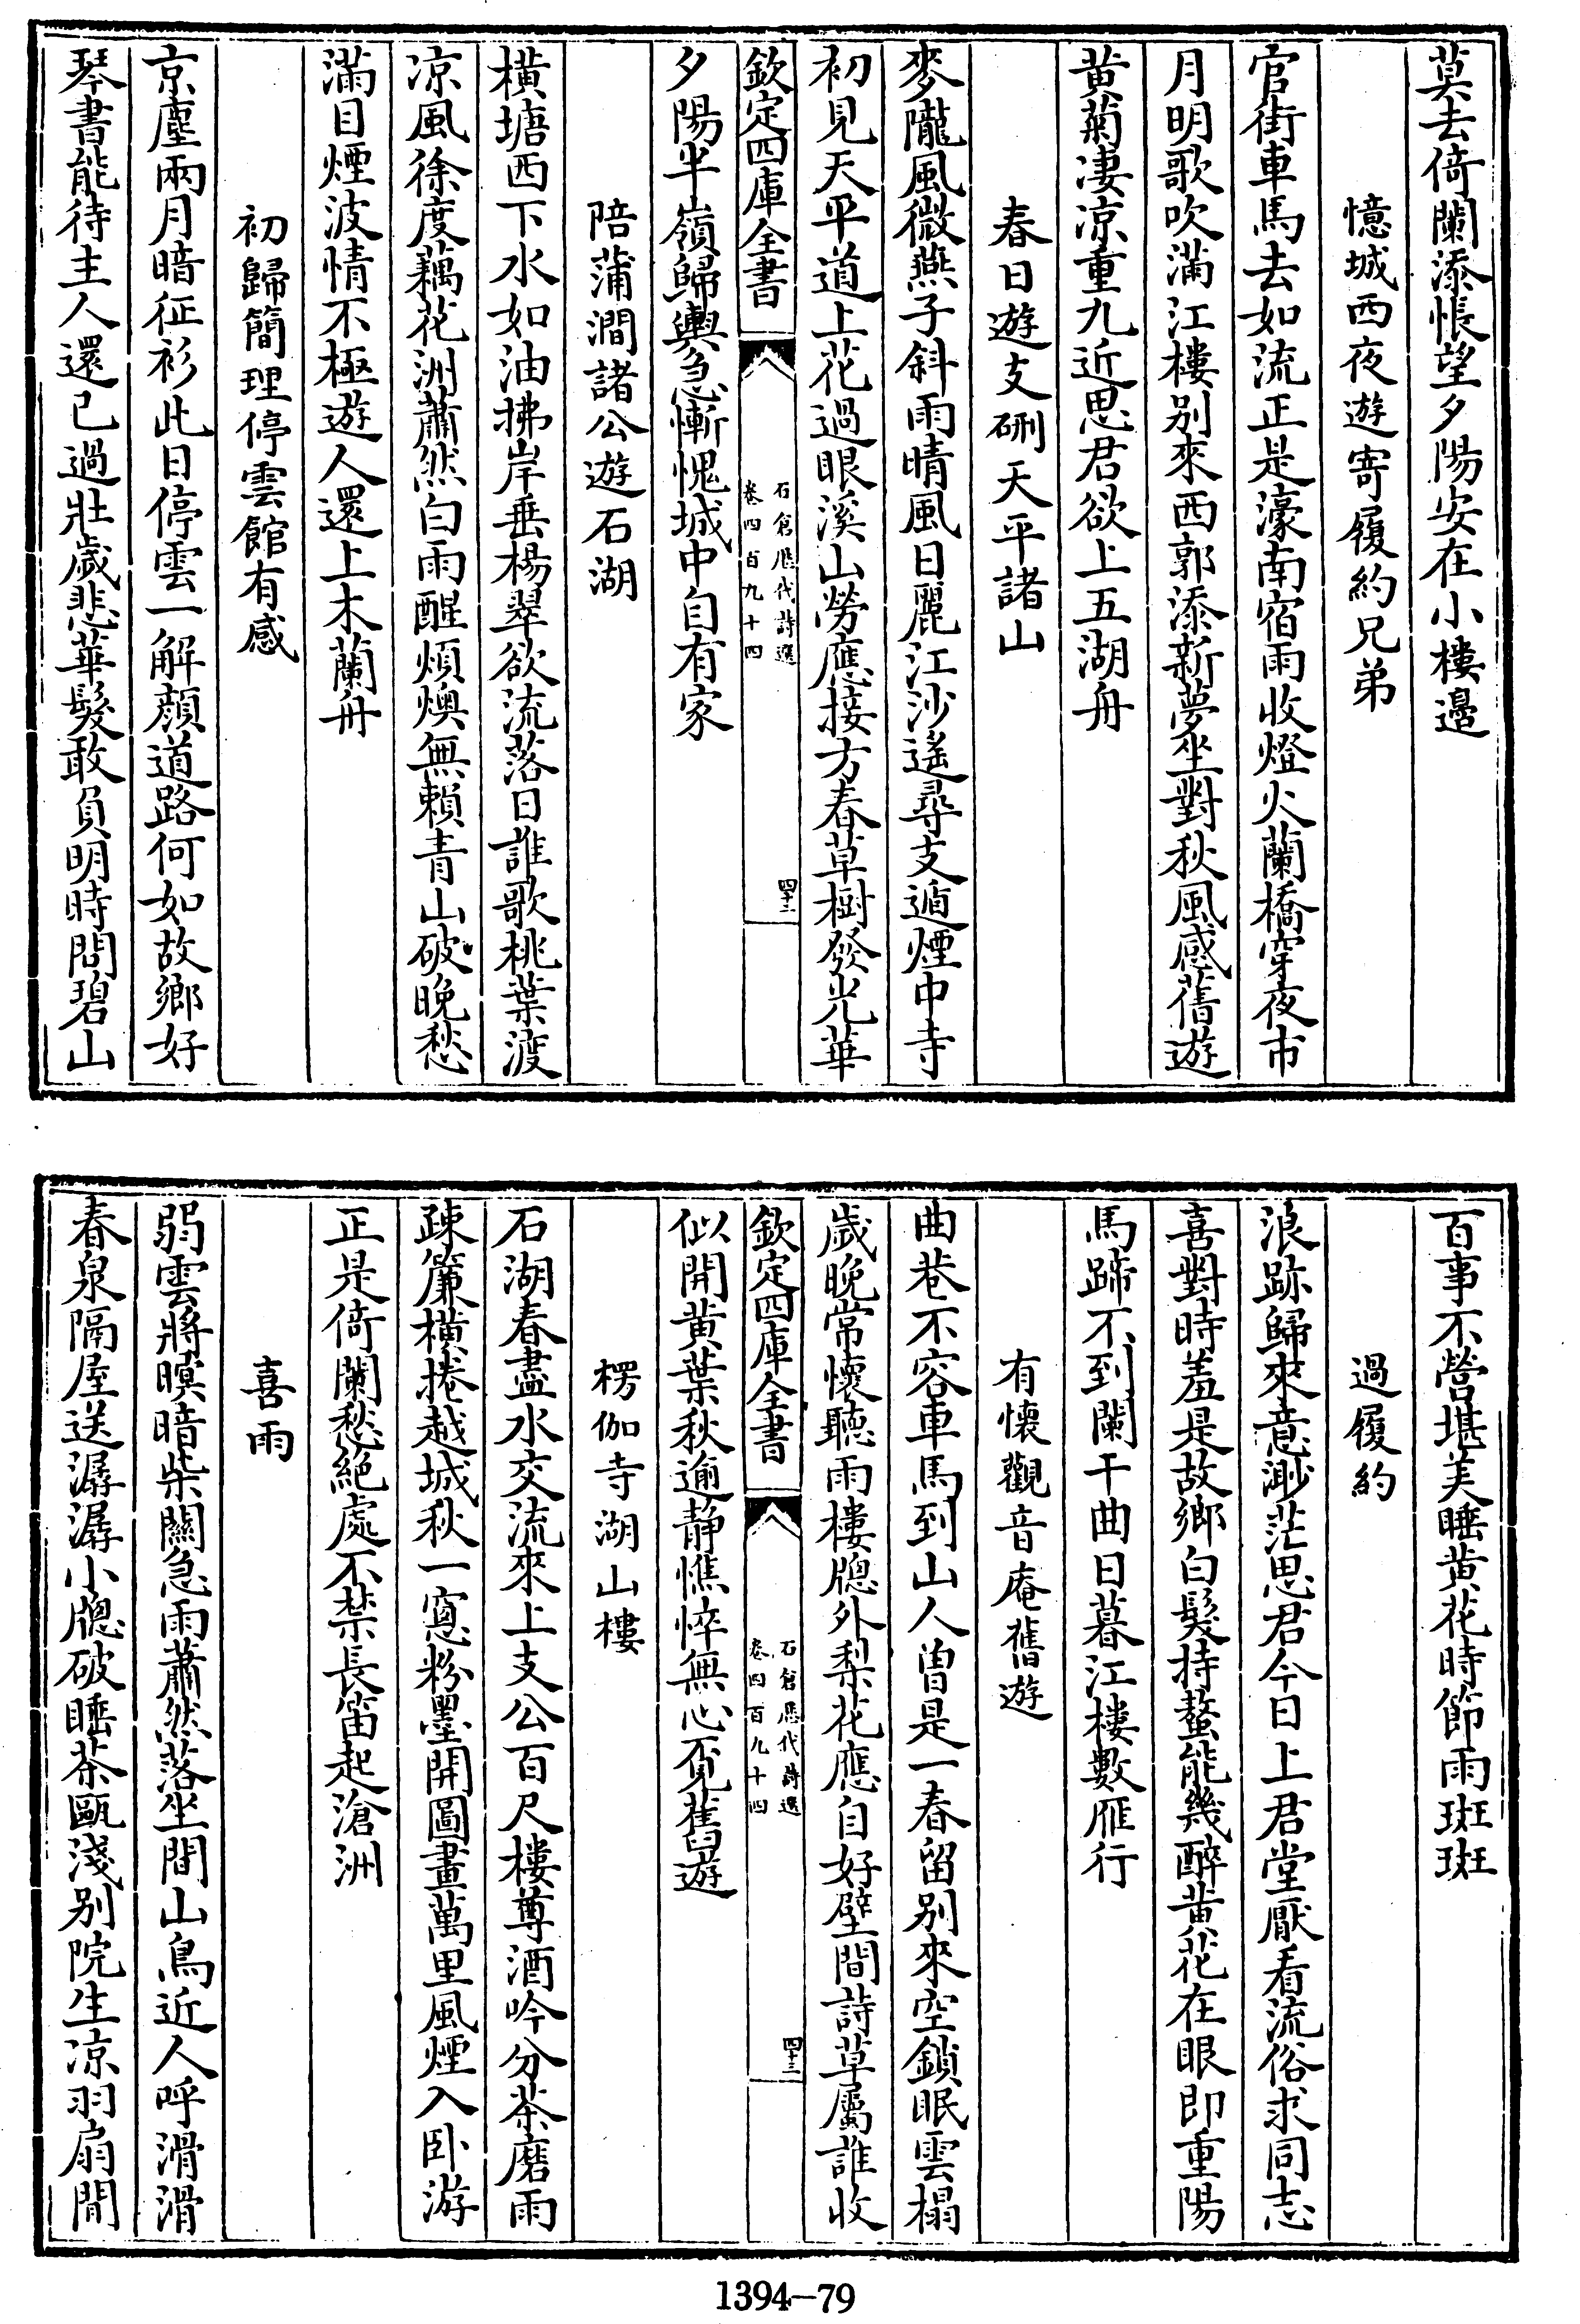 莫去倚闌添悵望夕陽安在小樓邉
憶城西夜遊寄履約兄弟
官街車馬去如流正是濠南宿雨收燈火蘭橋穿夜市
月明歌吹滿江樓别來西郭添新夢坐對秋風感舊遊
黄菊凄凉重九近思君欲上五湖舟
春日遊支硎天平諸山
麥隴風微燕子斜雨晴風日麗江沙遥尋支遁煙中寺
初見天平道上花過眼溪山勞應接方春草樹發光華
欽定四庫全書
石倉歴代詩選
卷四百九十四
四十三
夕陽半嶺歸輿急慚愧城中自有家
陪蒲澗諸公遊石湖
横塘西下水如油拂岸垂楊翠欲流落日誰歌桃葉渡
凉風徐度藕花洲蕭然白雨醒煩燠無賴青山破晚愁
滿目煙波情不極遊人還上木蘭舟
初歸簡理停雲館有感
京塵兩月暗征衫此日停雲一解顔道路何如故鄉好
琴書能待主人還已過壯歲悲華髮敢負明時問碧山
百事不營堪美睡黄花時節雨斑斑
過履約
浪跡歸來意渺茫思君今日上君堂厭看流俗求同志
喜對時羞是故鄉白髮持螯能幾醉黄花在眼即重陽
馬蹄不到闌干曲日暮江樓數雁行
有懷觀音庵舊遊
曲巷不容車馬到山人曽是一春留别來空鎖眠雲榻
歲晚常懷聽雨樓牕外梨花應自好壁間詩草屬誰收
欽定四庫全書
石倉歴代詩選
卷四百九十四
四十三
似開黄葉秋逾静憔悴無心覓舊遊
楞伽寺湖山樓
石湖春盡水交流來上支公百尺樓尊酒吟分茶磨雨
疎簾横捲越城秋一窓粉墨開圖畫萬里風煙入卧游
正是倚闌愁絶處不禁長笛起滄洲
喜雨
弱雲將暝暗柴關急雨蕭然落坐間山鳥近人呼滑滑
春泉隔屋送潺潺小牕破睡茶甌淺别院生凉羽扇閒
1394—79